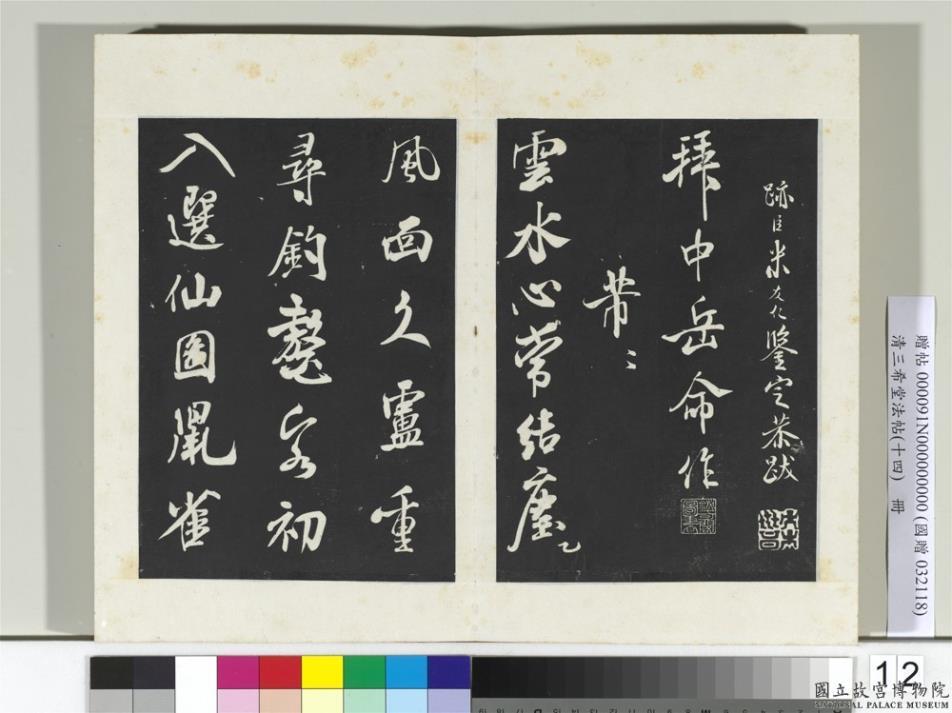 跡臣米友仁鑒定恭跋
拜中岳命作
芾〻
雲水心常結塵
風面久盧重
尋釣鼇客初
入選仙圖鼠雀
贈帖 000091N000000000 (國贈 032118)
清三希堂法帖(十四) 冊
12
國立故宮博物院
NATIONAL PALACE MUSEUM